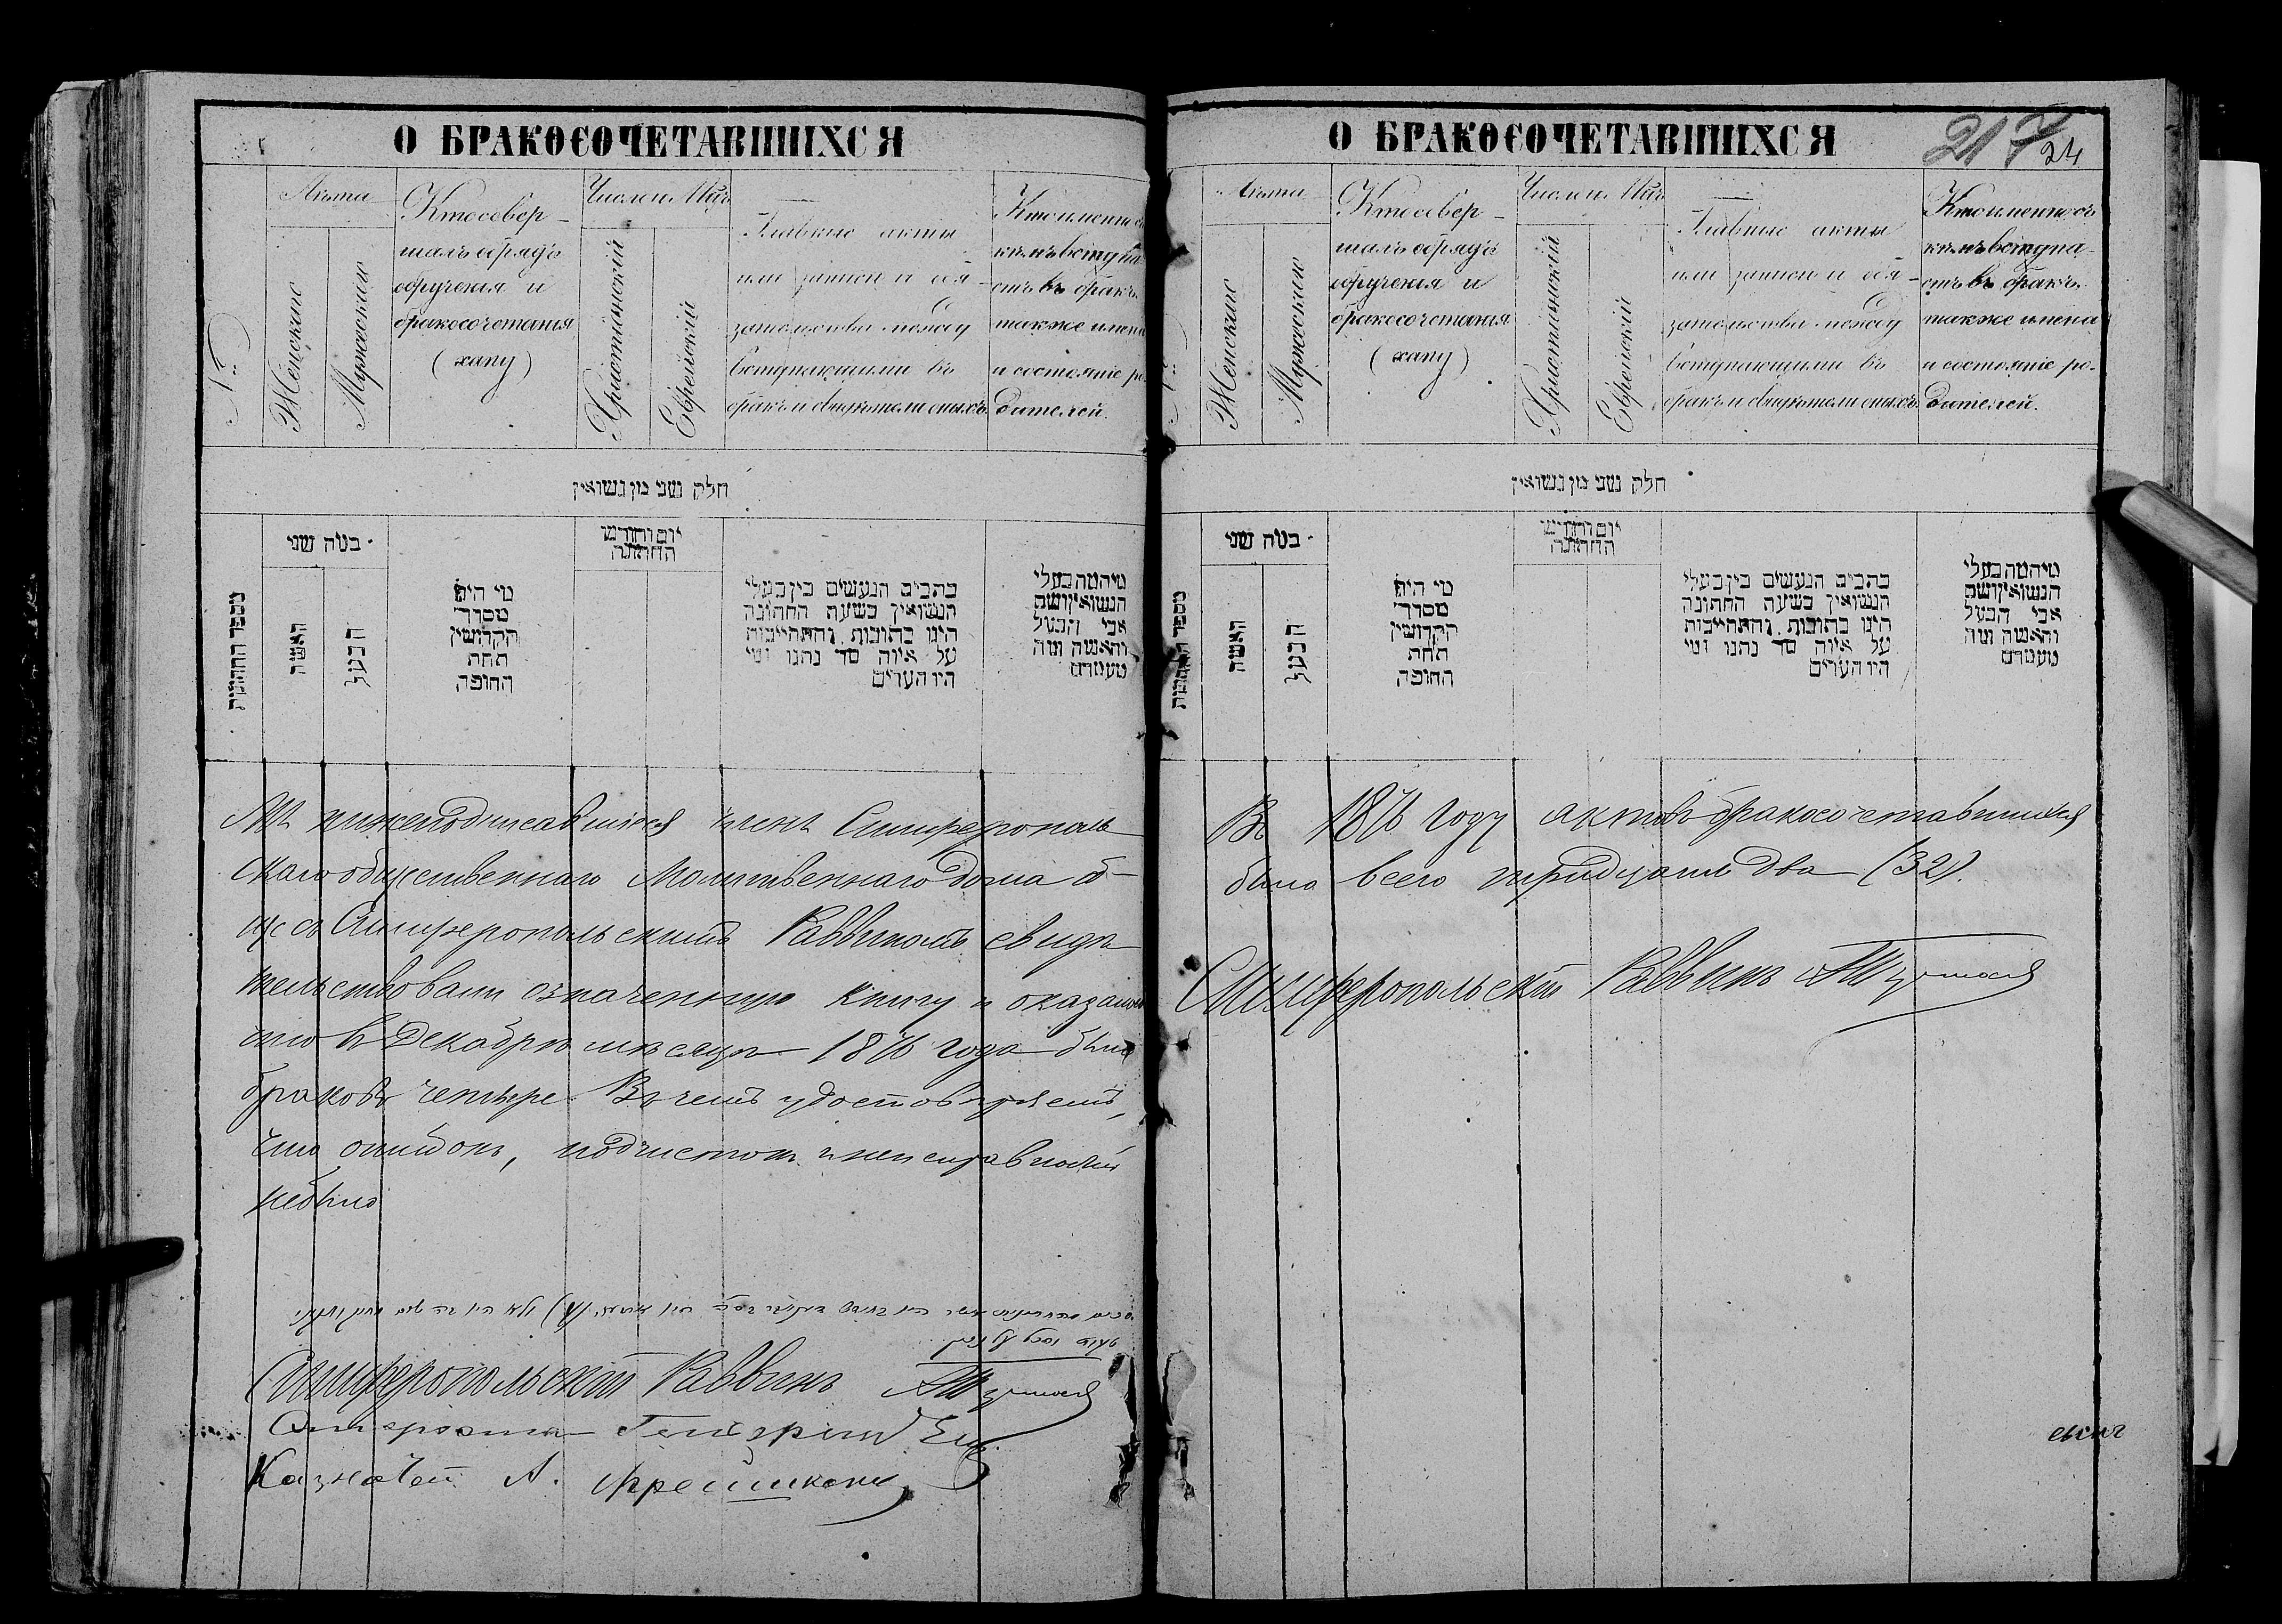 О БРАКОСОЧЕТАВШИХСЯ
№
Лѣта
Женскіе
Мужескіе
Кто совер-
шалъ обрядъ
обрученія и
бракосочетанія
(хапу)
Число и Мѣц
Христіянскій
Еврейскій
Главные акты
или записи и обя-
зательства между
вступающими въ
бракъ и свидѣтели оныхъ
Кто именно съ
кѣмъ вступа
етъ въ бракъ.
также имена
и состояніе ро-
дителей.
חלק שני מן נשואין
מספר החתונות
במה שני
האשה
הבעל
מי היה
מסדר
הקדושין
תחת
החופה
יום וחודש
החתונה
כתבים הנעשים בין בעלי
הנשואין בשעת החתונה
היינו כתובות והתחייבות
על איזה סך נתנו ומי
היו העדים
מי המה בעלי
הנשואין ושם
אבי הבעל
והאשה ומה
מעמדם
Мы нижеподписавшіеся члены Симферополь
скаго общественнаго Молитвеннаго дома об-
ще съ Симферопольскимъ Раввиномъ свидѣ
тельствовали означенную книгу и оказалось
что въ Декабрѣ мѣсяцѣ 1876 года было
браковъ четыре. Въ чемъ удостовѣряемъ,
что ошибокъ, подчистокъ и неисправностей
небыло
Симферопольскій Раввинъ
Староста
Казначей А.
О БРАКОСОЧЕТАВШИХСЯ
217
24
Лѣта
Женскіе
Мужескіе
Кто совер-
шалъ обрядъ
обрученія и
бракосочетанія
(хапу)
Число и Мѣц
Христіянскій
Еврейскій
Главные акты
или записи и обя-
зательства между
вступающими въ
бракъ и свидѣтели оныхъ
Кто именно съ
кѣмъ вступа-
етъ въ бракъ.
также имена
и состояніе ро-
дителей.
חלק שני מן נשואין
מספר החתונות
במה שני
האשה
הבעל
מי היה
מסדר
הקדושין
תחת
החופה
יום וחודש
החתונה
כתבים הנעשים בין בעלי
הנשואין בשעת החתונה
היינו כתובות והתחייבות
על איזה סך נתנו ומי
היו העדים
מי המה בעלי
הנשואין ושם
אבי הבעל
והאשה ומה
מעמדם
Въ 1876 году актовъ бракосочетавшихся
было всего тридцать два (32).
Симферопольскій Раввинъ